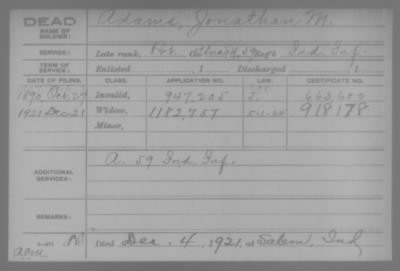 DEAD
NAME OF SOLDIER: Adams, Jonathan M.
SERVICE: Late rank, Pvt Co. 59 Regt Ind. Inf.
TERM OF SERVICE: Enlisted , 1 Discharged , 1
DATE OF FILING. CLASS. APPLICATION NO. LAW. CERTIFICATE NO.
1890 Oct 24 Invalid, 947,205 663,600
1921 Dec 21 Widow, 1182,757 918178
Minor,
ADDITIONAL SERVICES: A. 59 Ind. Inf.
REMARKS:
Died Dec. 4, 1921, at Salem, Ind